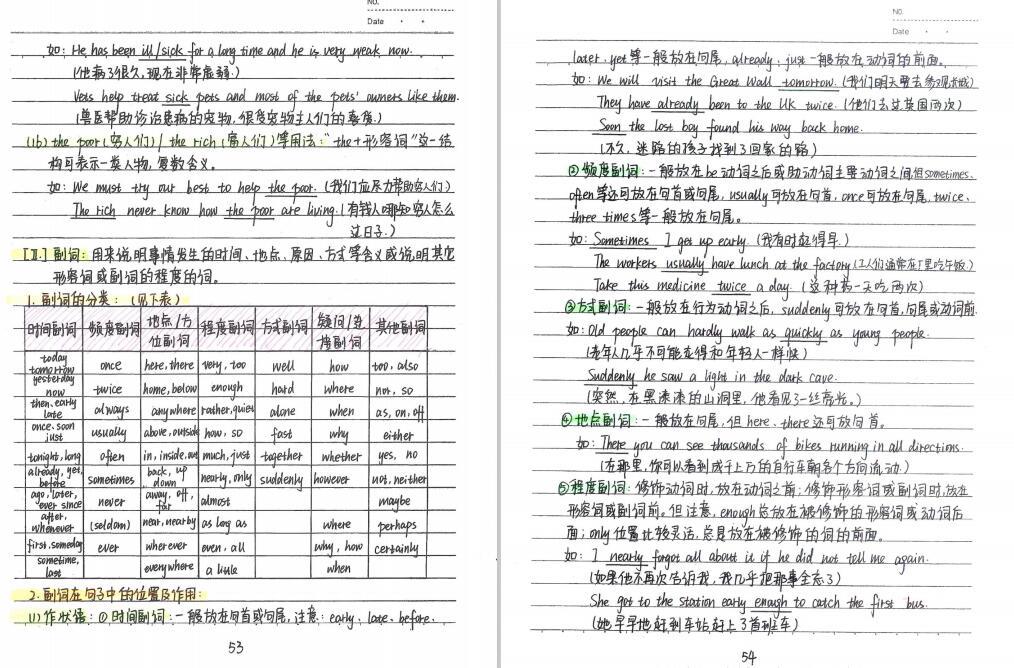 NO.
Date
如: He has been ill/sick for a long time and he is very weak now.
(他病了很久,现在非常虚弱.)
Vets help treat sick pets and most of the pets' owners like them.
(兽医帮助诊治患病的宠物,很受宠物主人们的喜爱.)
(16) the poor (穷人们) / the rich (富人们) 等用法: "the+形容词"这一结
构可表示一类人物,复数含义。
如: We must try our best to help the poor. (我们应尽力帮助穷人们)
The rich never know how the poor are living. (有钱人哪知穷人怎么
过日子.)
[II.] 副词: 用来说明事情发生的时间、地点、原因、方式等含义或说明其它
形容词或副词的程度的词。
1. 副词的分类: (见下表)
时间副词 频度副词 地点/方位副词 程度副词 方式副词 疑问/连接副词 其他副词
today tomorrow once here, there very, too well how too, also
yesterday now twice home, below enough hard where not, so
then, early late always anywhere rather, quiet alone when as, on, off
once, soon just usually above, outside how, so fast why either
tonight, long often in, inside, out much, just together whether yes, no
already, yet, before sometimes back, up down nearly, only suddenly however not, neither
ago, later, ever since never away, off, far almost maybe
after, whenever (seldom) near, nearby as long as where perhaps
first, someday ever wherever even, all why, how certainly
sometime, last everywhere a little when
2. 副词在句子中的位置及作用:
(1) 作状语: ① 时间副词: 一般放在句首或句尾, 注意: early, late, before,
53
NO.
Date
later, yet 等一般放在句尾, already, just 一般放在动词的前面。
如: We will visit the Great Wall tomorrow. (我们明天要去参观长城)
They have already been to the UK twice. (他们去过英国两次)
Soon the lost boy found his way back home.
(不久,迷路的孩子找到了回家的路)
② 频度副词: 一般放在be动词之后或助动词与主要动词之间,但sometimes,
often等还可放在句首或句尾, usually可放在句首, once可放在句尾, twice,
three times等一般放在句尾。
如: Sometimes I get up early. (我有时起得早.)
The workers usually have lunch at the factory (工人们通常在厂里吃午饭.)
Take this medicine twice a day. (这种药一天吃两次)
③ 方式副词: 一般放在行为动词之后, suddenly可放在句首,句尾或动词前.
如: Old people can hardly walk as quickly as young people.
(老年人几乎不可能走得和年轻人一样快)
Suddenly he saw a light in the dark cave.
(突然,在黑漆漆的山洞里,他看见了一丝亮光。)
④ 地点副词: 一般放在句尾, 但 here, there还可放句首。
如: There you can see thousands of bikes running in all directions.
(在那里,你可以看到成千上万的自行车朝各个方向流动)
⑤ 程度副词: 修饰动词时,放在动词之前; 修饰形容词或副词时,放在
形容词或副词前。但注意, enough总放在被修饰的形容词或动词后
面; only位置比较灵活, 总是放在被修饰的词的前面。
如: I nearly forgot all about it if he did not tell me again.
(如果他不再次告诉我,我几乎把那事全忘了)
She got to the station early enough to catch the first bus.
(她早早地赶到车站赶上了首班车)
54